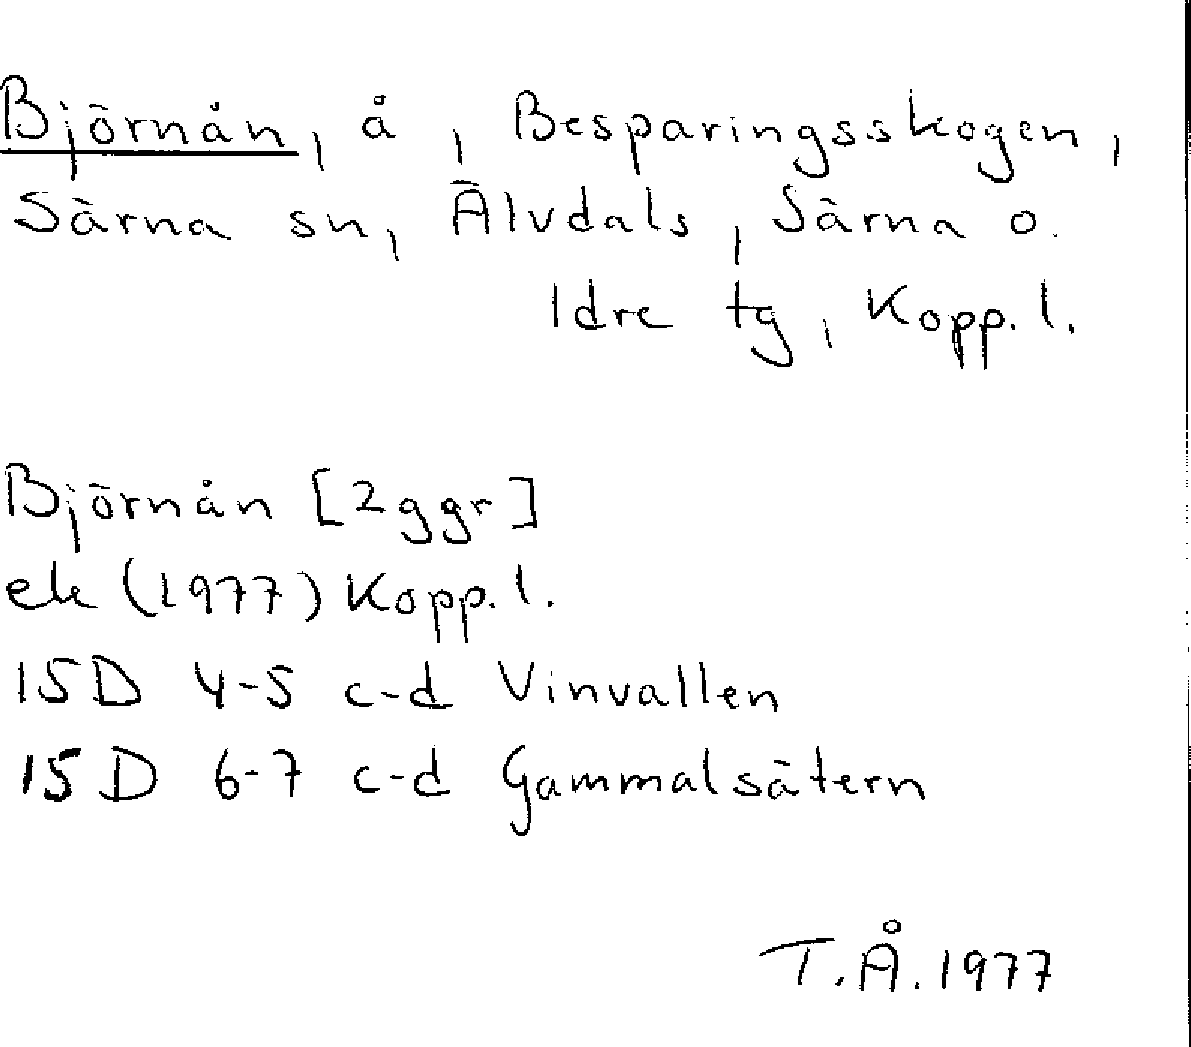 Björnån, å, Besparingsskogen,
Särna sn, Älvdals, Särna o.
Idre tg, Kopp. l.
Björnån [2 ggr]
ek (1977) Kopp. l.
15D 4-5 c-d Vinvallen
15D 6-7 c-d Gammalsätern
T.Å. 1977